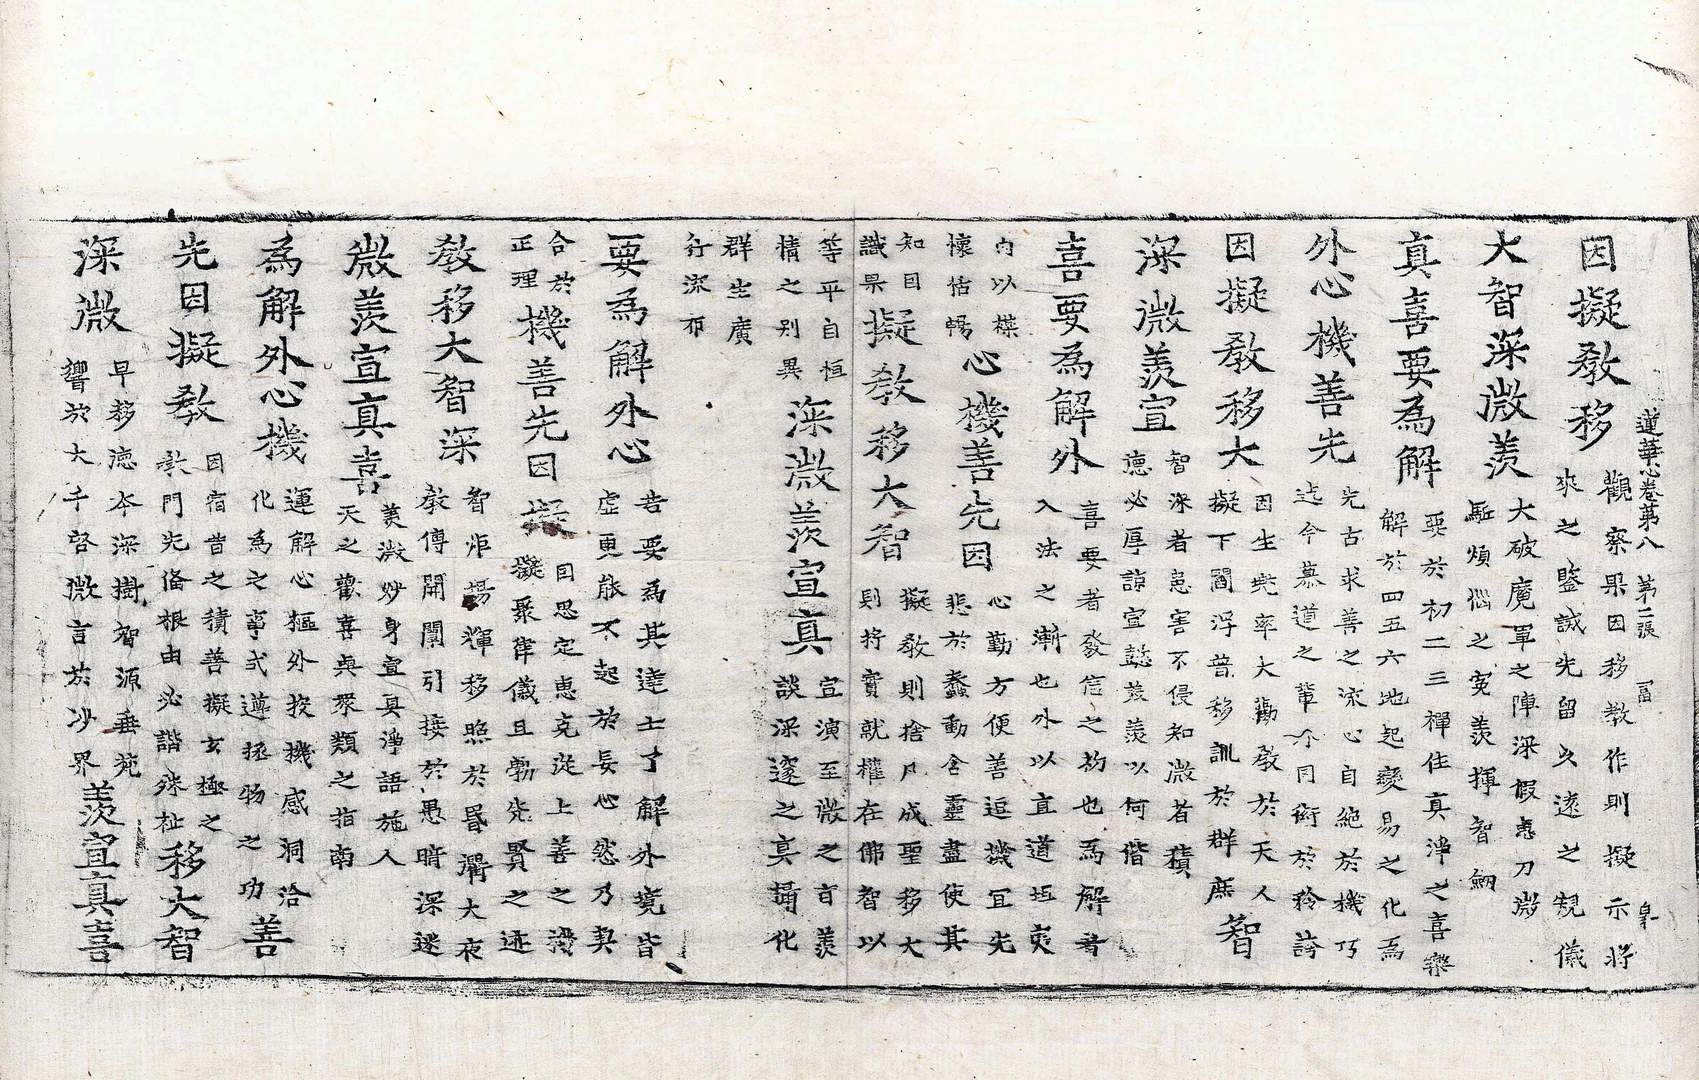 蓮華心卷第八 第二張 冨
因擬教移
觀察果因移教作則擬示將
來之鑒誡先留久遠之規儀
大智深微羨
大破魔軍之陣深假惠刀微
駈煩惱之寃羨揮智劒
真喜要為解
要於初二三禪住真淨之喜樂
解於四五六地起變易之化為
外心機善先
先古求善之流心自絕於機巧
迄今慕道之輩外同衒於矜誇
因擬教移大
因生兜率大勸教於天人
擬下閻浮普移訓於群庶
智
深微羨宣
智深者患害不侵知微者積
德必厚諒宣懿羨羨以何偕
喜要為解外
喜要者發信之初也為解者
入法之漸也外以直道坦夷
內以襟
懷恬暢
心機善先因
心勤方便善逗機宜先
悲於蠢動含靈盡使其
知因
識果
擬教移大智
擬教則捨凡成聖移大
則將實就權在佛智以
等平自恒
情之別異
深微羨宣真
宣演至微之旨羨
談深邃之真攝化
群生廣
行流布
要為解外心
若要為其達士了解外境皆
虛更能不起於長心然乃契
合於
正理
機善先因擬
因思定惠克從上善之
擬聚律儀且勑先賢之迹
教移大智深
智炬揚輝移照於昏衢大夜
教傳開闡引接於愚暗深迷
微羨宣真喜
羨微妙身宣真淨語施人
天之歡喜與眾類之指南
為解外心機
運解心樞外投機感洞洽
化為之事式遵拯物之功
善
先因擬教
因宿昔之積善擬玄極之
教門先備根由必諧殊祉
移大智
深微
早移德本深樹智源垂菀
響於大千啓微言於沙界
羨宣真喜